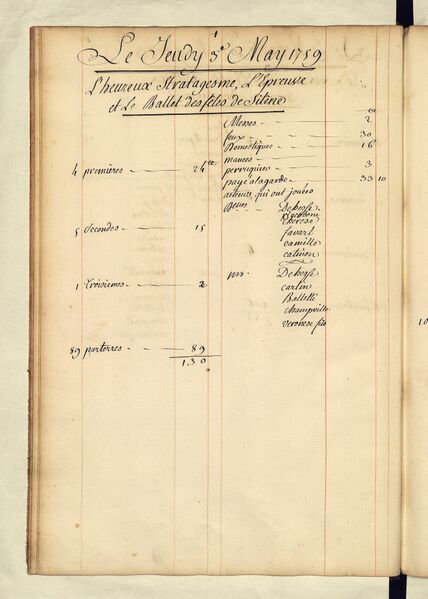 1
Le Jeudy 3e May 1759
L'heureux Stratagesme, L'Epreuve
et Le Ballet des fetes de Silene
Messes - 2
feux - 30
Domestiques - 16
mances -
4 premières - 24
perruquier - 3
payé a la garde - 33 10
acteurs qui ont jouées
Dehesse
5 Secondes - 15
Therese
favart
camille
catinon
1 Troisiemes - 2
mrs. Dehesse
carlin
Balletti
champville
veronese fils
89 parterres - 89
130
10